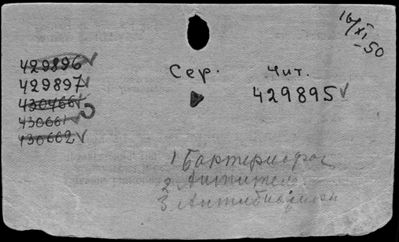 16/XI
-50
429896
429897
430466
430661
130662
Сер. Чит.
429895
1 Бактериофаг
2 Антител
3 Антибио